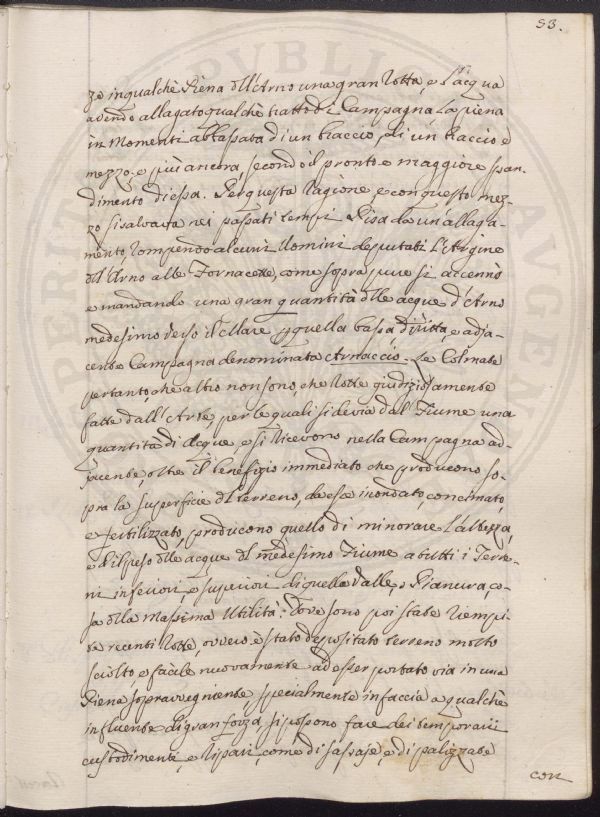 53.
zo in qualche Piena dell'Arno una gran Rotta, e l'acqua
avendo allagato qualche tratto di Campagna la piena
in Momenti abbassata di un braccio, di un braccio e
mezzo, e più ancora, secondo il pronto e maggiore span-
dimento di essa. Per questa ragione, e con questo mez-
zo si salvava nei passati tempi Pisa da un'allaga-
mento, rompendo alcuni Uomini deputati l'Argine
dell'Arno alle Fornacette, come sopra pure si accennò
e mandando una gran quantità delle acque d'Arno
medesimo verso il Mare p quella bassa diritta, e adja-
cente Campagna denominata Arnaccio. Le Colmate
pertanto, che altro non sono, che Rotte giudiziosamente
fatte dall'Arte, per le quali si devia dal Fiume una
quantità di Acque, e si ricevono nella Campagna ad-
jacente, oltre il benefizio immediato che producono so-
pra la superficie del terreno, da esse inondato, concimato,
e fertilizzato, producono quello di minorare l'altezza,
e il peso delle acque del medesimo Fiume a tutti i Terre-
ni inferiori e superiori di quella Valle, o Pianura, co-
sa della Massima Utilità. Dove sono poi state riempi-
te recenti Rotte, ovvero è stato depositato terreno molto
sciolto, e facile nuovamente ad esser portato via in una
Piena sopravvegniente, specialmente in faccia a qualche
influente di gran forza, si possono fare dei temporarii
custodimenti, e Ripari, come di sassaje, e di palizzate
con